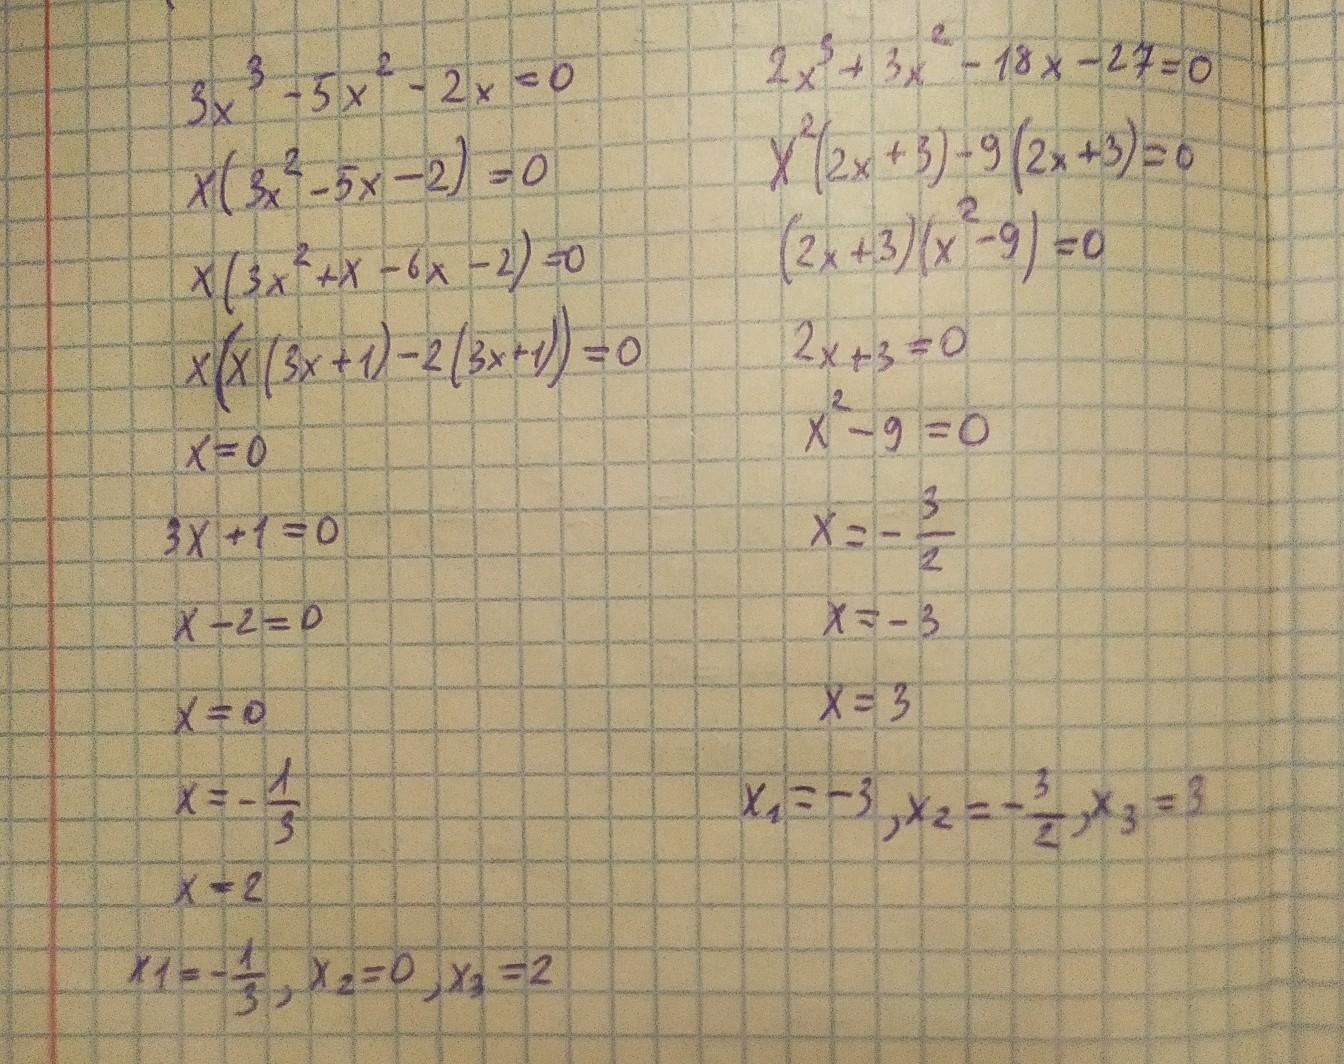 3x³ - 5x² - 2x = 0
x(3x² - 5x - 2) = 0
x(3x² + x - 6x - 2) = 0
x(x(3x + 1) - 2(3x + 1)) = 0
x = 0
3x + 1 = 0
x - 2 = 0
x = 0
x = - 1/3
x = 2
x1 = - 1/3, x₂ = 0, x₃ = 2
2x³ + 3x² - 18x - 27 = 0
x²(2x + 3) - 9(2x + 3) = 0
(2x + 3)(x² - 9) = 0
2x + 3 = 0
x² - 9 = 0
x = - 3/2
x = - 3
x = 3
x₁ = - 3, x₂ = - 3/2, x₃ = 3